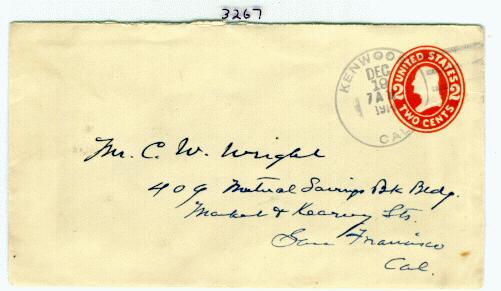 3267
KENWOO
DEC
19
7 A
191
CAL
UNITED STATES
2 2
TWO CENTS
Mr. C. W. Wright
409 Mutual Savings Bk Bldg.
Market & Kearny Sts.
San Francisco
Cal.